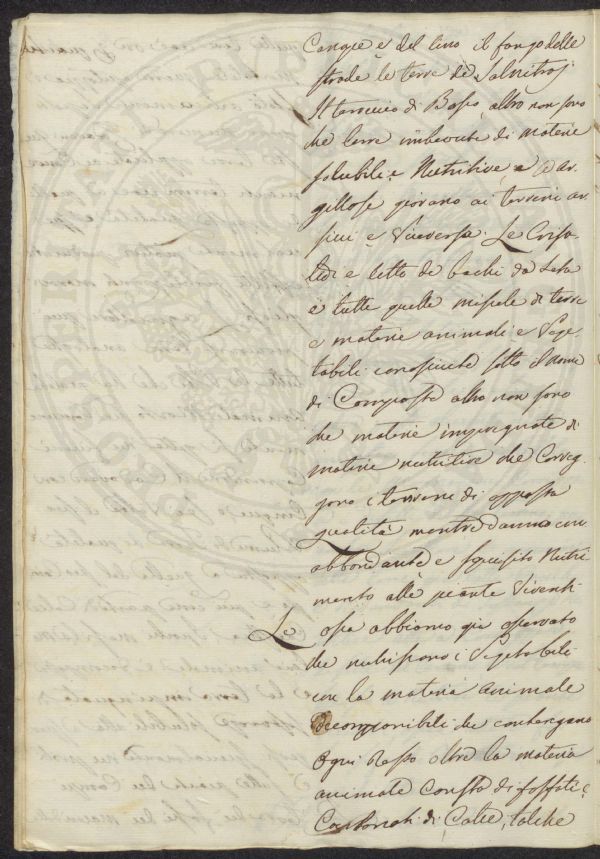 Canque e del lino il fango delle
strade le terre de Salnitroj
Il terriccio di Bosco, altro non sono
che terre imbevute di materie
solubili e Nutritive, e
gillose giovano ai terreni ar
sicci e Viceversa. Le Crisa
lidi e letto de bachi da Seta
e tutte quelle miscele di terre
e materie animali e Vege-
tabili conosciute sotto il nome
di Composte altro non sono
che materie impregnate di
materie nutritive che Correg
gono i terreni di opposta
qualità mentre danno un
abbondante e squisito Nutri
mento alle piante Viventi
Le ossa abbiamo già osservato
che nutriscono i Vegetabili
con la materia animale
decomponibili che contengano
ogni osso oltre la materia
animale consta di fosfati e
Carbonati di Calce, talche